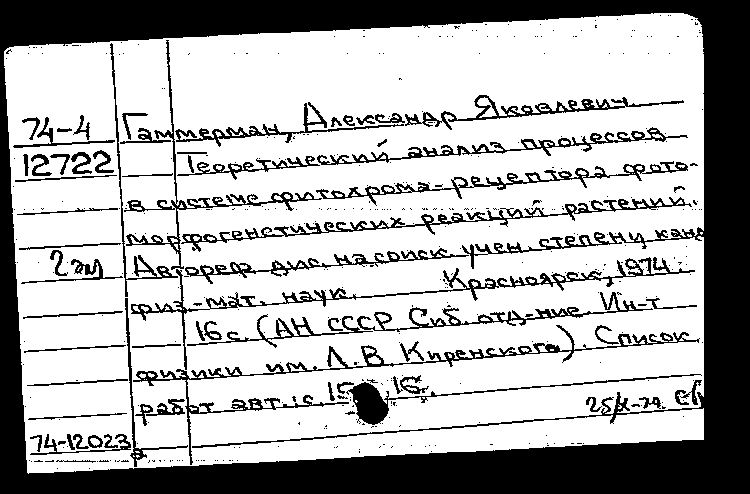 74-4 Гаммерман, Александр Яковлевич.
12722 Теоретический анализ процессов
в системе фитохрома-рецептора фото-
морфогенетических реакций растений.
2 эк Автореф. дис. на соиск. учен. степени канд
физ.-мат. наук. Красноярск, 1974.
16 с. (АН СССР. Сиб. отд-ние. Ин-т
физики им. Л.В. Киренского). Список
работ авт.: с. 15 16.
25/X-74
74-12023